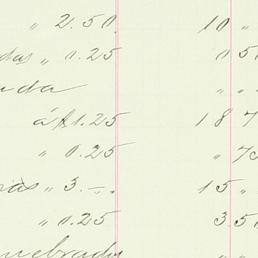 " 2.50. 10 "
das " 0.25 0 50
uda " "
á $1.25 18 7
" 0.25 " 75
as " 3.–. 15 "
" 0.25 3.50
uebrados